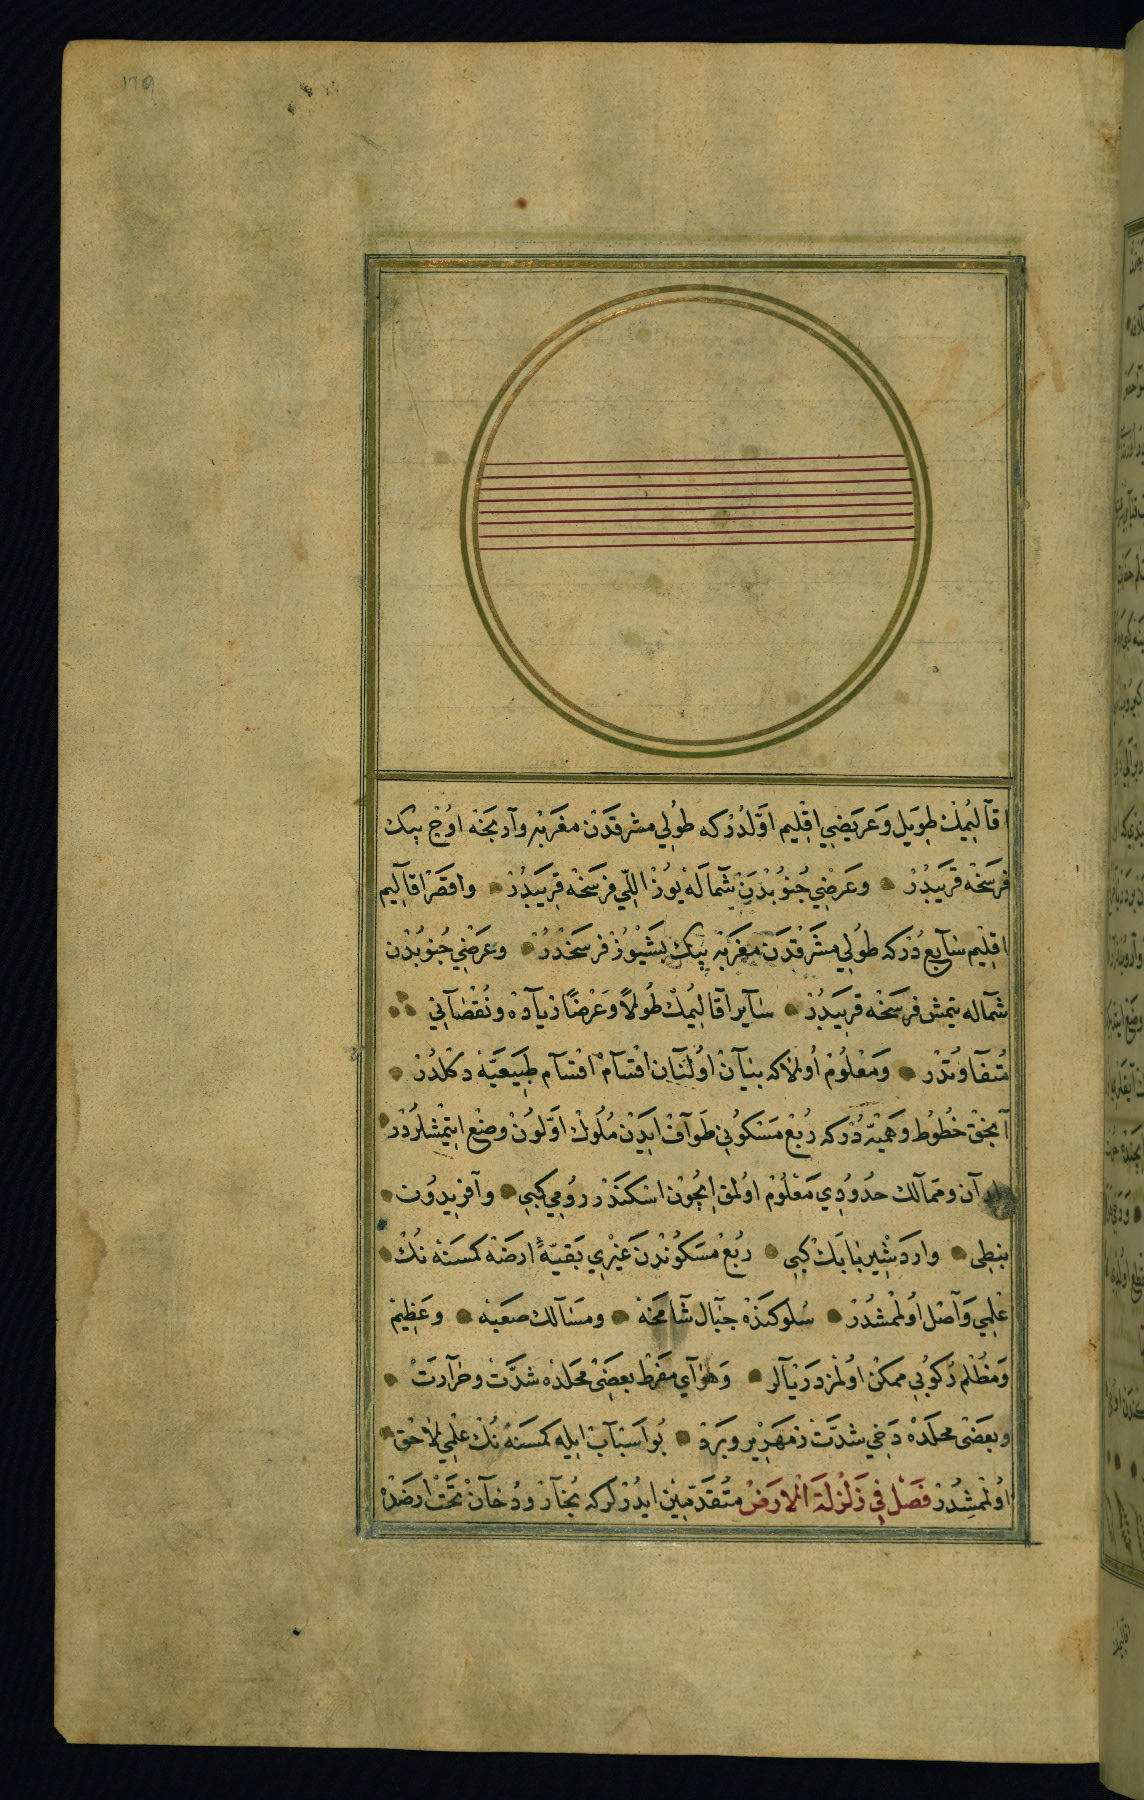 ١٦٩
اقاليمك طويل وعريضي اقليم اولدركه طولي مشرقدن مغربه وارنجه اوج بيك
فرسخه قريبدر وعرضي جنوبدن شماله يوز اللي فرسخه قريبدر واقصر اقاليم
اقليم سابع دركه طولي مشرقدن مغربه بيك بشيوز فرسخدر وعرضي جنوبدن
شماله يتمش فرسخه قريبدر ساير اقاليمك طولا وعرضا زياده ونقصاني
متفاوتدر ومعلوم اولاكه بيان اولنان اقسام اقسام طبيعيه دكلدر
انجق خطوط وهميه دركه ربع مسكوني طواف ايدن ملوك اولون وضع ايتمشلردر
وممالك حدودي معلوم اولمق ايچون اسكندر رومي كبي وآفريدون
نبطي واردشير بابك كبي ربع مسكوندن غيري بقيه ارضه كمسنه نك
علمي واصل اولمشدر سلوكنده جبال شامخه ومسالك صعبه وعظيم
ومظلم ركوبي ممكن اولمز دريالر وهواي مفرط بعضي محلده شدت وحرارت
وبعضي محلده دخي شدت زمهرير وبرد بو اسباب ايله كمسنه نك علمي لاحق
اولمشدر فصل في زلزلة الارض متقدمين ايدرلركه بخار ودخان تحت ارضده